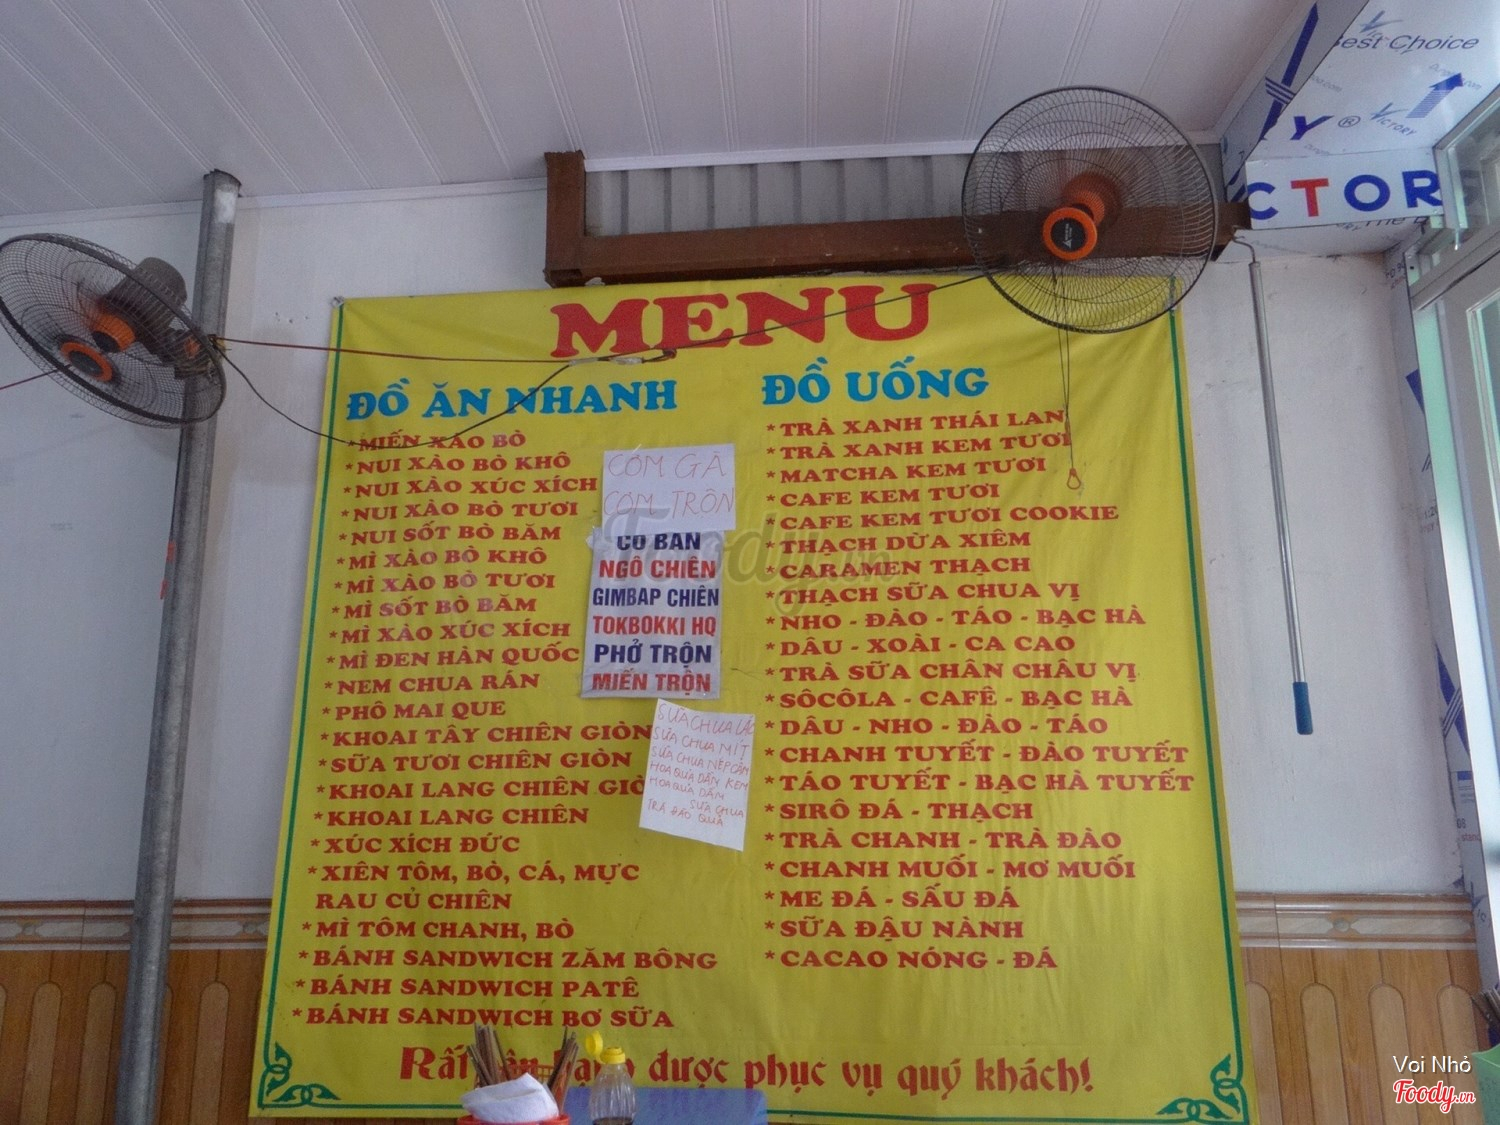 MENU
ĐỒ ĂN NHANH
*MIẾN XÀO BÒ
*NUI XÀO BÒ KHÔ
*NUI XÀO XÚC XÍCH
*NUI XÀO BÒ TƯƠI
*NUI SỐT BÒ BĂM
*MÌ XÀO BÒ KHÔ
*MÌ XÀO BÒ TƯƠI
*MÌ SỐT BÒ BĂM
*MÌ XÀO XÚC XÍCH
*MÌ ĐEN HÀN QUỐC
*NEM CHUA RÁN
*PHÔ MAI QUE
*KHOAI TÂY CHIÊN GIÒN
*SỮA TƯƠI CHIÊN GIÒN
*KHOAI LANG CHIÊN GIÒ
*KHOAI LANG CHIÊN
*XÚC XÍCH ĐỨC
*XIÊN TÔM, BÒ, CÁ, MỰC
RAU CỦ CHIÊN
*MÌ TÔM CHANH, BÒ
*BÁNH SANDWICH ZĂM BÔNG
*BÁNH SANDWICH PATÊ
*BÁNH SANDWICH BƠ SỮA
CƠM GÀ
CƠM TRỘN
CÓ BÁN
NGÔ CHIÊN
GIMBAP CHIÊN
TOKBOKKI HQ
PHỞ TRỘN
MIẾN TRỘN
SỮA CHUA LẮC
SỮA CHUA MÍT
SỮA CHUA NẾP CẨM
HOA QUẢ DẦM KEM
HOA QUẢ DẦM
SỮA CHUA
TRÀ ĐÀO QUẢ
ĐỒ UỐNG
*TRÀ XANH THÁI LAN
*TRÀ XANH KEM TƯƠI
*MATCHA KEM TƯƠI
*CAFE KEM TƯƠI
*CAFE KEM TƯƠI COOKIE
*THẠCH DỪA XIÊM
*CARAMEN THẠCH
*THẠCH SỮA CHUA VỊ
*NHO - ĐÀO - TÁO - BẠC HÀ
*DÂU - XOÀI - CA CAO
*TRÀ SỮA CHÂN CHÂU VỊ
*SÔCÔLA - CAFÊ - BẠC HÀ
*DÂU - NHO - ĐÀO - TÁO
*CHANH TUYẾT - ĐÀO TUYẾT
*TÁO TUYẾT - BẠC HÀ TUYẾT
*SIRÔ ĐÁ - THẠCH
*TRÀ CHANH - TRÀ ĐÀO
*CHANH MUỐI - MƠ MUỐI
*ME ĐÁ - SẤU ĐÁ
*SỮA ĐẬU NÀNH
*CACAO NÓNG - ĐÁ
Rất được phục vụ quý khách!
Best Choice
VICTORY
Y®
CTORY
Foody.vn
Voi Nhỏ
Foody.vn